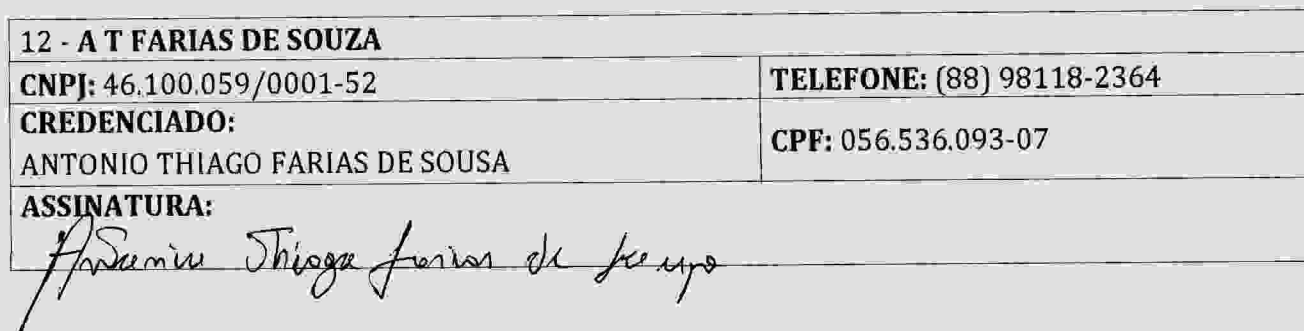 12 - A T FARIAS DE SOUZA
CNPJ: 46.100.059/0001-52 TELEFONE: (88) 98118-2364
CREDENCIADO:
ANTONIO THIAGO FARIAS DE SOUSA
CPF: 056.536.093-07
ASSINATURA:
Antonio Thiago Farias de Souza